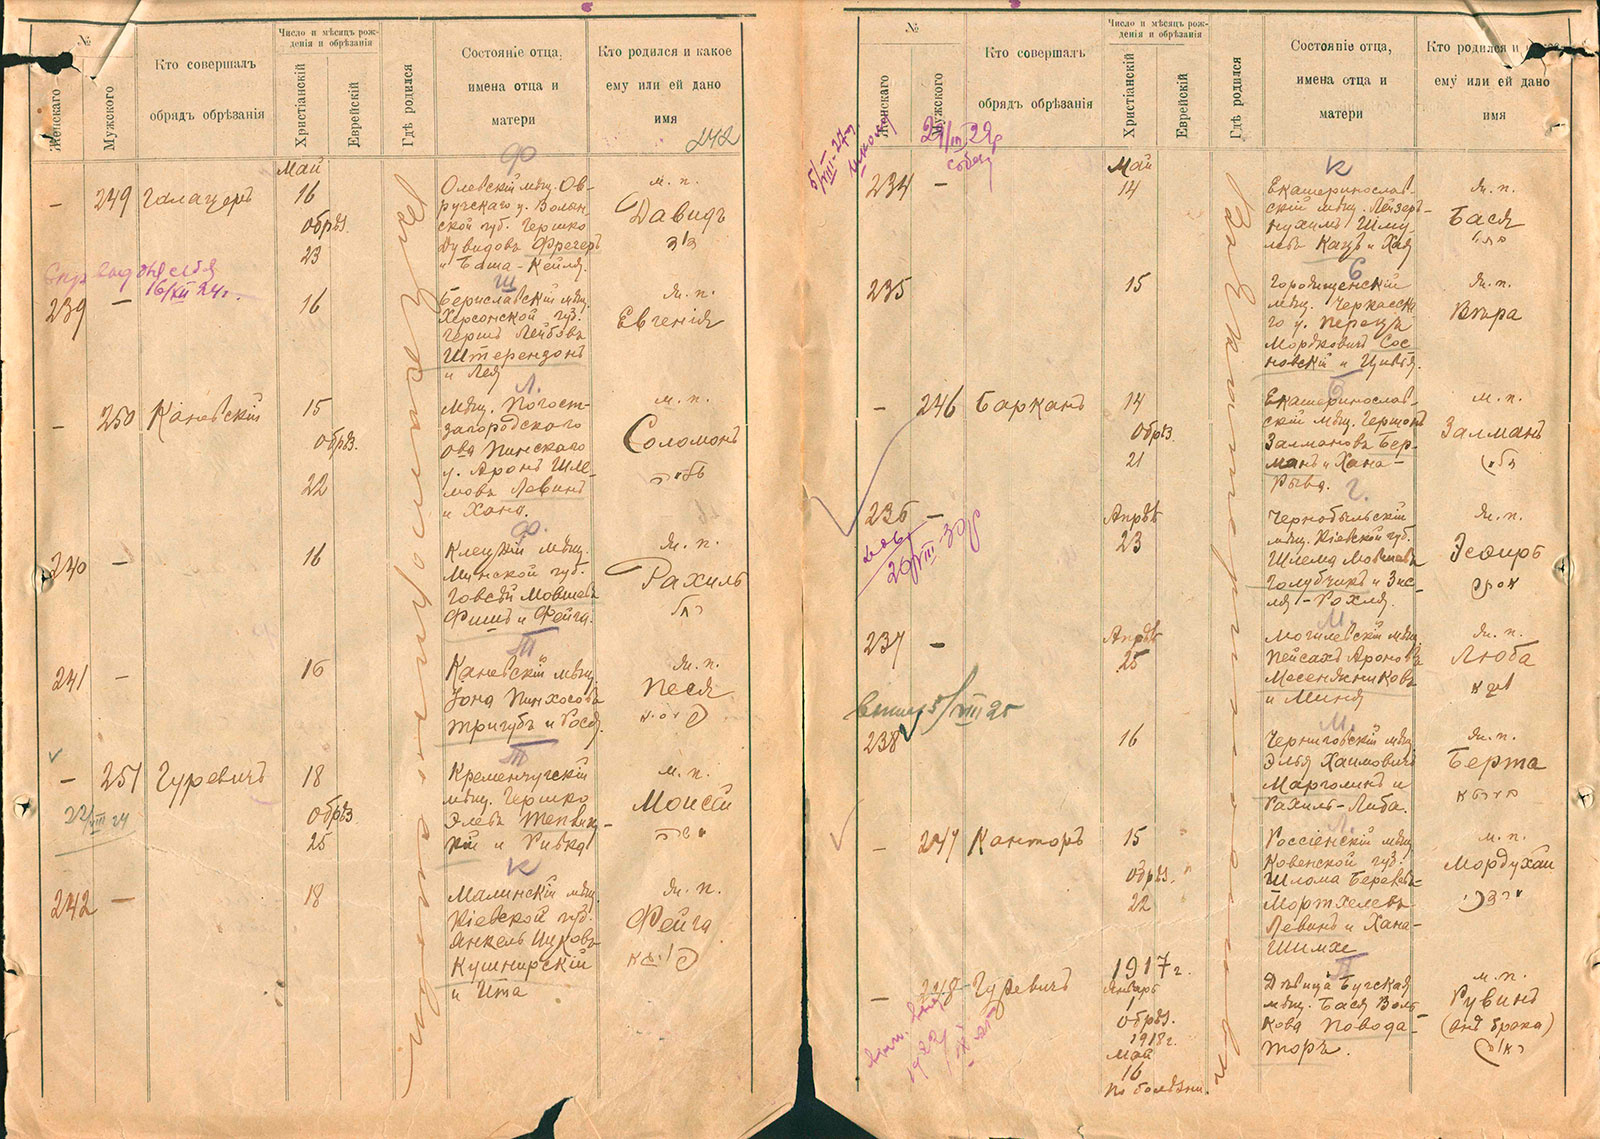 №
Женскаго
Мужского
Кто совершалъ
обрядъ обрѣзанія
Число и мѣсяцъ рож-
денія и обрѣзанія
Христіанскій
Еврейскій
Гдѣ родился
Состояніе отца,
имена отца и
матери
Кто родился и какое
ему или ей дано
имя
242
Май
Ф
– 249 Галацеръ 16
обрѣз.
23
Олевскій мѣщ. Ов-
ручскаго у. Волын-
ской губ. Гершко
Дувидовъ Фрегеръ
и Баша-Кейля.
м. п.
Давидъ
דוד
16/XII 24г.
239 – 16
Ш
Бериславскій мѣщ.
Херсонской губ.
Гершъ Лейбовъ
Штерендонъ
и Лея
ж. п.
Евгенія
– 250 Каневскій 15
обрѣз.
22
Л.
мѣщ. Погост-
загородского
о-ва Пинскаго
у. Аронъ Шле-
мовъ Левинъ
и Хана.
м. п.
Соломонъ
240 – 16
Ф.
Клецкій мѣщ.
Минской губ.
Говсѣй Мовшевъ
Фишъ и Фейга.
ж. п.
Рахиль
רחל
241 – 16
Т
Каневскій мѣщ.
Іона Пинхосовъ
Тригубъ и Рося
ж. п.
Песя
פיסיא
– 251 Гуревичъ 18
обрѣз
25
22/VIII 24
Т
Кременчугскій
мѣщ. Гершко
Элевъ Теплиц-
кій и Ривка
м. п.
Моисей
משה
242 – 18
К
Малинскій мѣщ.
Кіевской губ.
Янкель Ицковъ
Кушнирскій
и Ита
ж. п.
Фейга
פייגא
№
Женскаго
Мужского
Кто совершалъ
обрядъ обрѣзанія
Число и мѣсяцъ рож-
денія и обрѣзанія
Христіанскій
Еврейскій
Гдѣ родился
Состояніе отца,
имена отца и
матери
Кто родился и какое
ему или ей дано
имя
Май
234 – 14
К
Екатеринослав-
скій мѣщ. Лейзеръ-
Нухимъ Шму-
левъ Кацъ и Хая
ж. п.
Бася
235 15
С
Городищенскій
мѣщ. Черкасска-
го у. Перецъ
Мордковичъ Сос
новскій и Цивья.
ж. п.
Вѣра
– 246 Барканъ 14
обрѣз
21
Б
Екатеринослав-
скій мѣщ. Гершонъ
Залмановъ Бер-
манъ и Хана-
Рыва.
м. п.
Залманъ
זלמן
236 – Апрѣль
23
29/VIII 30г
Г.
Чернобыльскій
мѣщ. Кіевской губ.
Шлема Мовшевъ
Голубчикъ и Зис-
ля-Рохля.
ж. п.
Эсѳирь
אסתר
237 – Апрѣль
25
М
Могилевскій мѣщ.
Пейсахъ Ароновъ
Месенжниковъ
и Миня
ж. п.
Люба
ליבא
5/VIII 25
238 16
М.
Черниговскій мѣщ.
Элья Хаимовичъ
Марголинъ и
Рахиль-Либа.
ж. п.
Берта
– 247 Канторъ 15
обрѣз.
22
Л.
Россіенскій мѣщ.
Ковенской губ.
Шлома Беревъ-
Мортхелевъ
Левинъ и Хана-
Шимхе
м. п.
Мордухай
מרדכי
1917 г.
– 248 Гуревичъ Январь
1
обрѣз.
1918г.
Май
16
По болѣзни.
П
Дѣвица Бугская
мѣщ. Бася Воль
кова Повода-
торъ.
м. п.
Рувинъ
(внѣ брака)
ראובן
Екатеринославъ